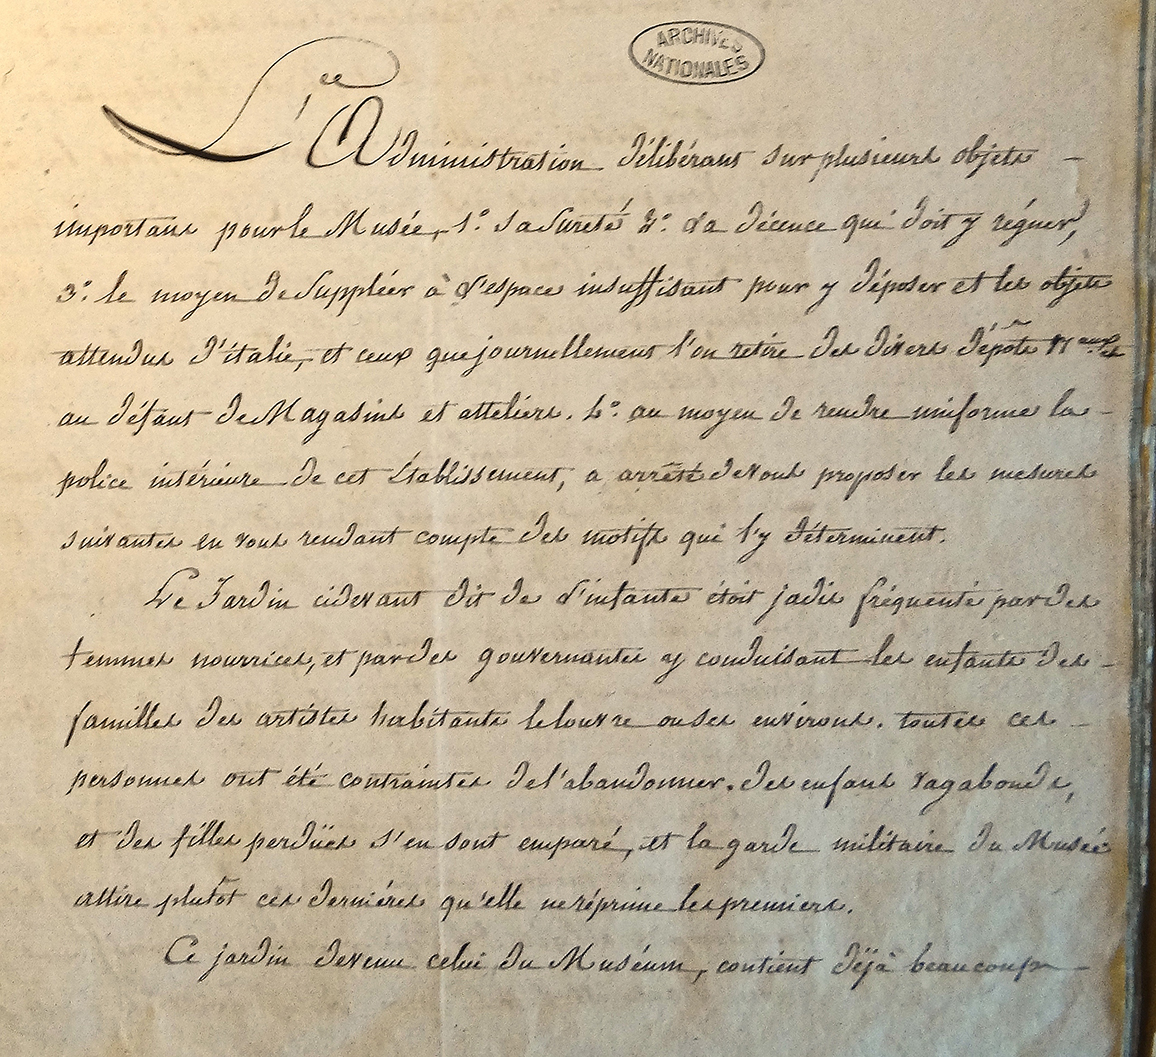 ARCHIVES
NATIONALES
L'Administration délibérant sur plusieurs objets
importans pour le Musée, 1.° sa sureté 2.° la décence qui doit y régner,
3.° le moyen de suppléer à l'espace insuffisant pour y déposer et les objets
attendus d'italie, et ceux que journellement l'on retire des divers dépôts N.aux et
au défaut de Magasins et atteliérs. 4.° au moyen de rendre uniforme la
police intérieure de cet Etablissement, a arrêté de vous proposer les mesures
suivantes en vous rendant compte des motifs qui l'y déterminent.
Le Jardin cidevant dit de l'infante étoit jadis fréquenté par des
femmes nourrices, et par des gouvernantes y conduisant les enfants des
familles des artistes habitants le louvre ou ses environs. toutes ces
personnes ont été contraintes de l'abandonner. des enfans vagabonds,
et des filles perdües s'en sont emparé, et la garde militaire du Musée
attire plutôt ces derniéres qu'elle ne réprime les premiers.
Ce jardin devenu celui du Muséum, contient déjà beaucoup